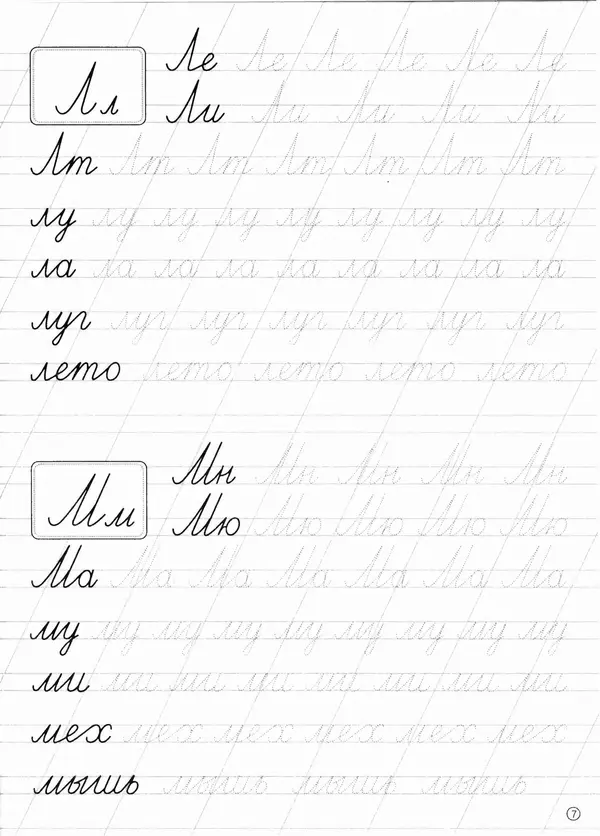 Лл
Ле Ле Ле Ле Ле Ле
Ли Ли Ли Ли Ли Ли
Лт Лт Лт Лт Лт Лт Лт
лу лу лу лу лу лу лу лу лу
ла ла ла ла ла ла ла ла ла
луг луг луг луг луг луг луг
лето лето лето лето лето
Мм
Мн Мн Мн Мн Мн
Мю Мю Мю Мю Мю
Ма Ма Ма Ма Ма Ма Ма
му му му му му му му му му
ми ми ми ми ми ми ми ми
мех мех мех мех мех мех
мышь мышь мышь мышь
7